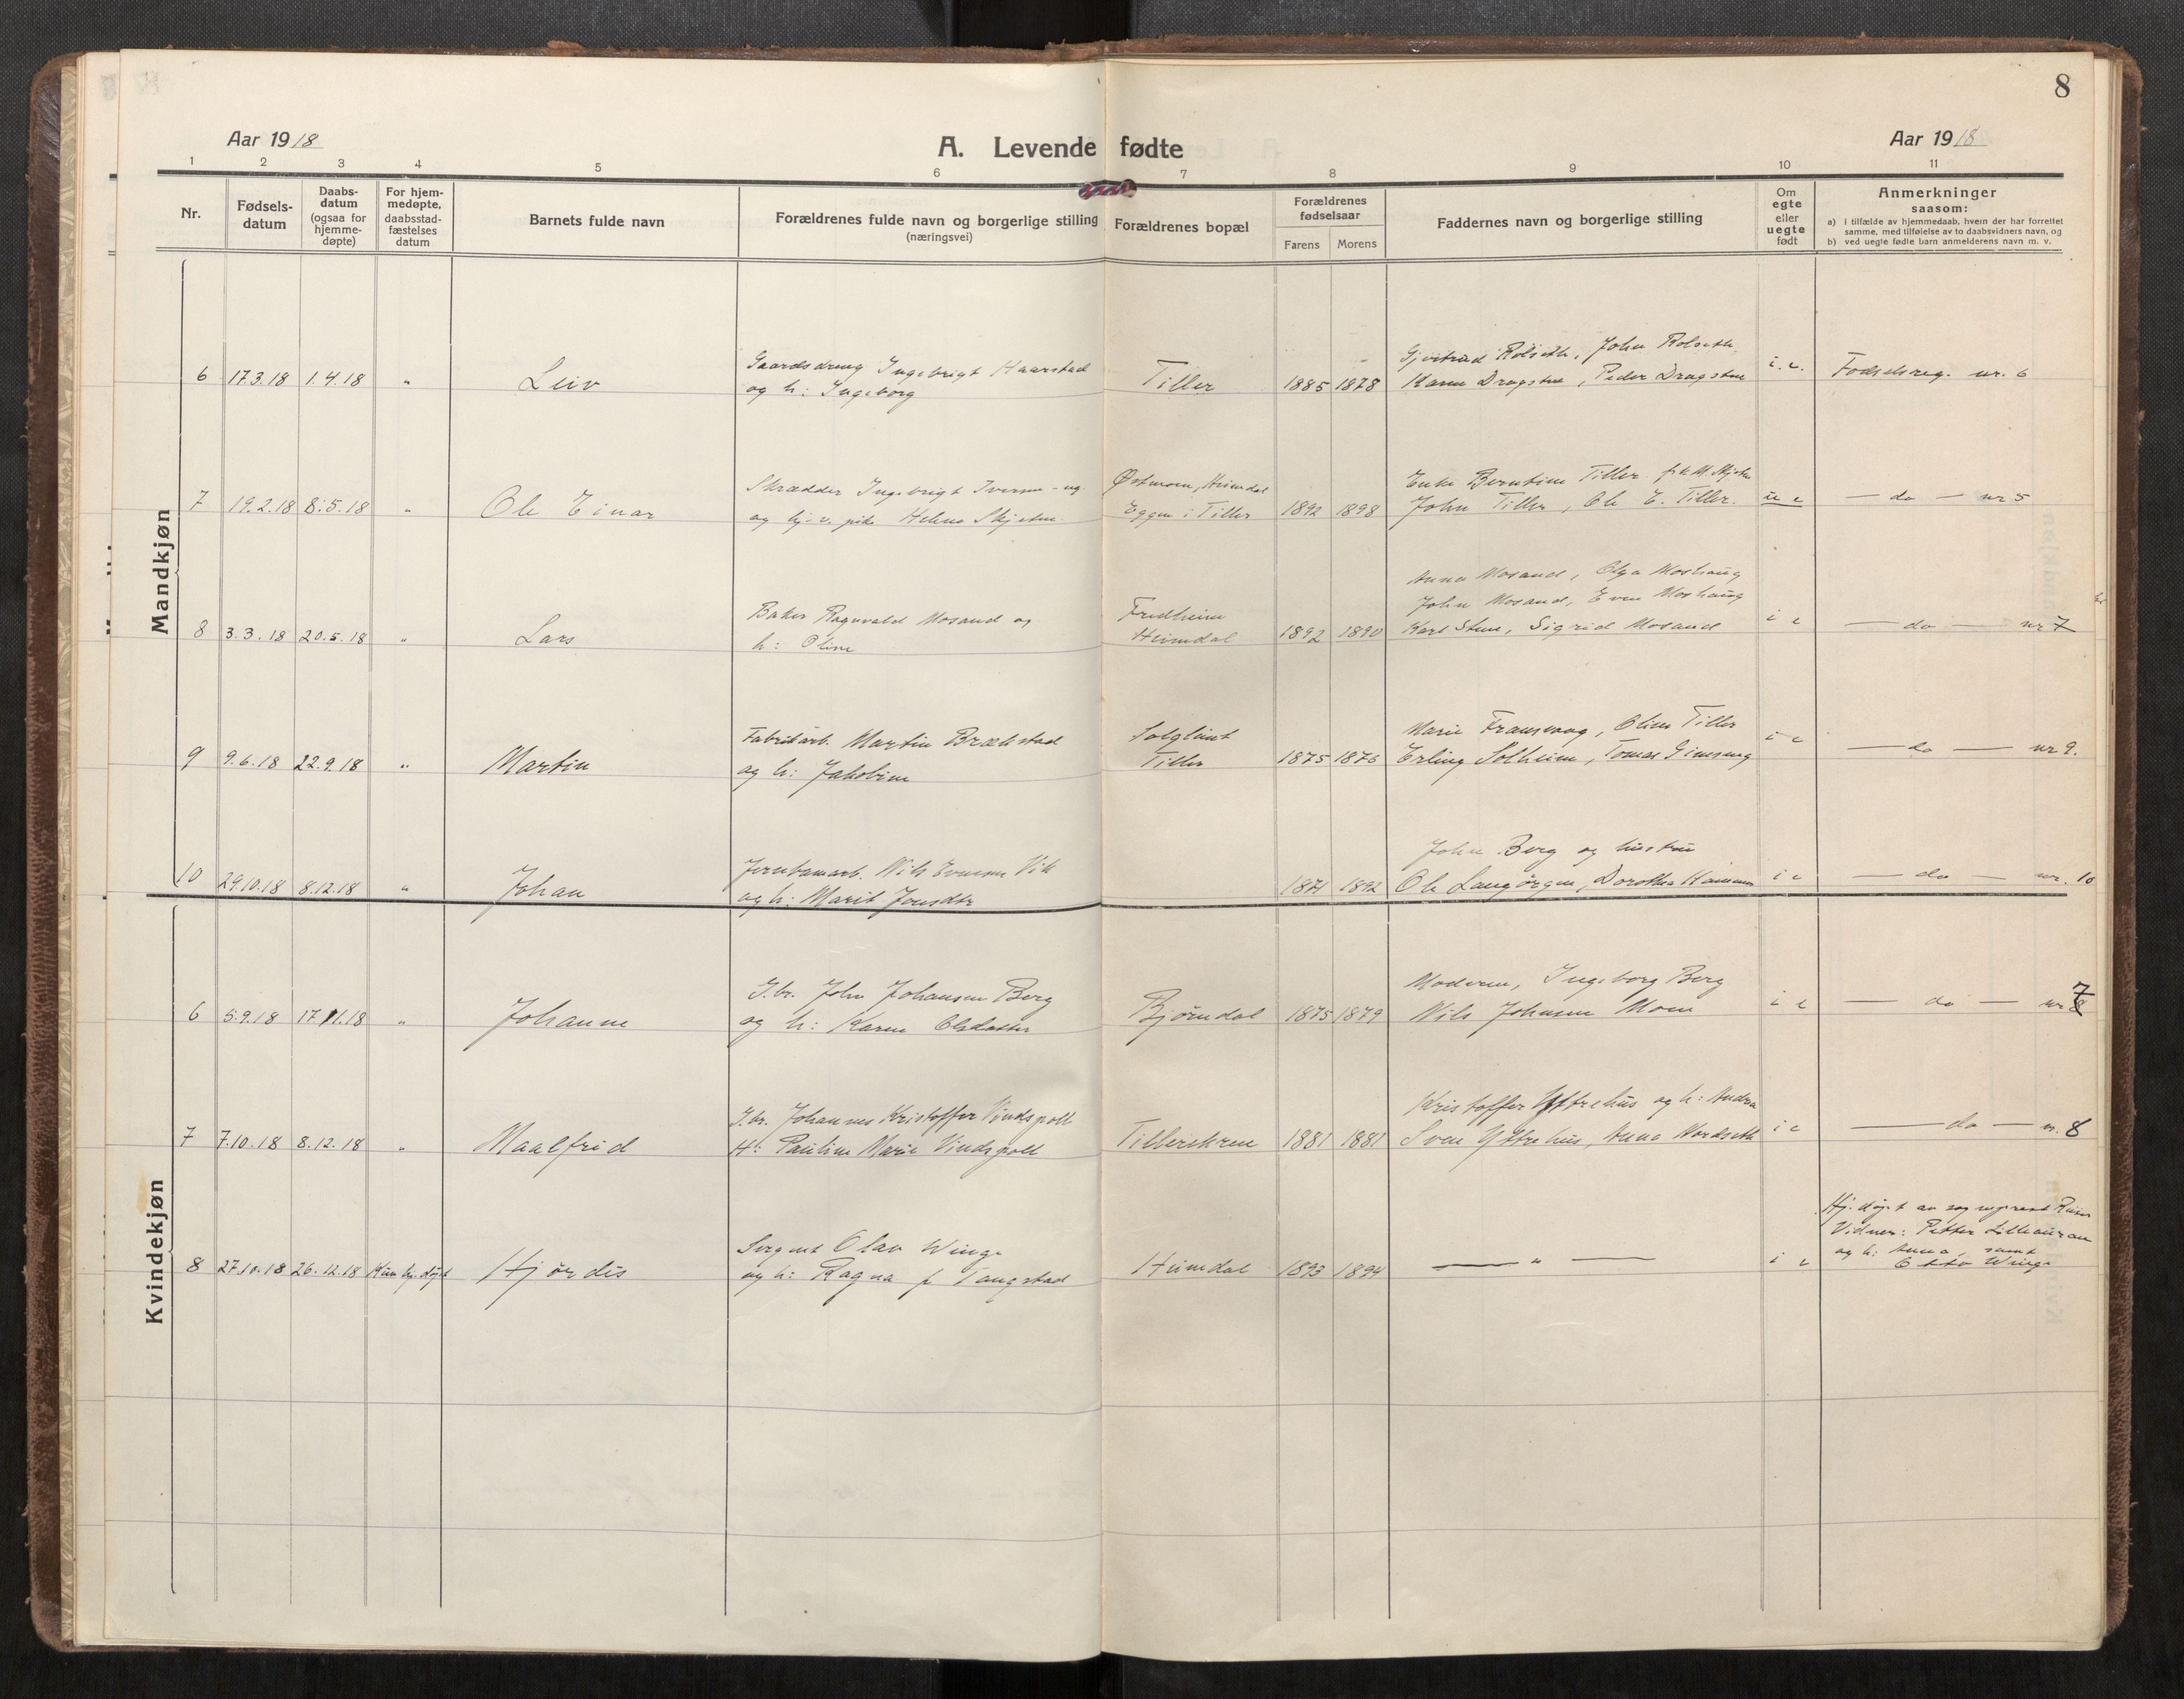 8
Aar 1918
A. Levende fødte
Aar 1918
1 2 3 4 5 6 7 8 9 10 11
Nr.
Fødsels-
datum
Daabs-
datum
(ogsaa for
hjemme-
døpte)
For hjem-
medøpte,
daabsstad-
fæstelses
datum
Barnets fulde navn
Forældrenes fulde navn og borgerlige stilling
(næringsvei)
Forældrenes bopæl
Forældrenes
fødselsaar
Farens Morens
Faddernes navn og borgerlige stilling
Om
egte
eller
uegte
født
Anmerkninger
saasom:
a) i tilfælde av hjemmedaab, hvem der har forrettet
samme, med tilføielse av to daabsvidners navn, og
b) ved uegte fødte barn anmelderens navn m. v.
Mandkjøn
6 17.3.18 1.4.18 " Leiv
Gaardsdreng Ingebrigt Haarstad
og h: Ingeborg
Tiller
1885 1878
Gjertrud Rolseth, John Rolseth
Karen Dragsten, Peder Dragsten
i. e.
Fødselsreg. nr. 6
7 19.2.18 8.5.18 " Ole Einar
Skrædder Ingebrigt Iversen - ug.
og pike Helene Skjetne
Østmoen, Heimdal
Eggen i Tiller
1892 1898
Enke Berntine Tiller
John Tiller, Ole E. Tiller.
u e
— do — nr 5
8 3.3.18 20.5.18 " Lars
Baker Ragnvald Mosand og
h: Oline
Fredheim
Heimdal
1892 1890
Anna Mosand, Olga Moshaug
John Mosand, Even Moshaug
Karl Stene, Sigrid Mosand
i e
— do — nr 7
9 9.6.18 22.9.18 " Martin
Fabrikarb. Martin Brækstad
og h: Jakobine
Solglimt
Tiller
1875 1876
Marie Oline Tiller
Erling Solheim, Tomas Gimseng
i e
— do — nr 9.
10 29.10.18 8.12.18 " Johan
Jernbanearb. Nils Evensen Vik
og h: Marit Jonsdtr
1871 1892
John Berg og hustru
Ole Langørgen, Dorothea
i e
— do — nr. 10
Kvindekjøn
6 5.9.18 17.11.18 " Johanne
G.br. John Johansen Berg
og h: Karen Olsdatter
Bjørndal
1875 1879
Moderen, Ingeborg Berg
Nils Johnsen Moen
i e
— do — nr 8 7
7 7.10.18 8.12.18 " Maalfrid
G.br. Johannes Kristoffer Vindspoll
H: Pauline Marie Vindspoll
Tillerskren
1881 1881
Kristoffer Yttrehus og h: Andrea
Sven Yttrehus, Anna Nordseth
i e
— do — n. 8
8 27.10.18 26.12.18 Kun hj. døpt Hjørdis
Sergent Olav Winge
og h: Ragna f Tangstad
Heimdal
1893 1894
— " —
i e
Hj. døpt av sogneprest
Vidner: Petter
og h: Anna, samt
Otto Winge